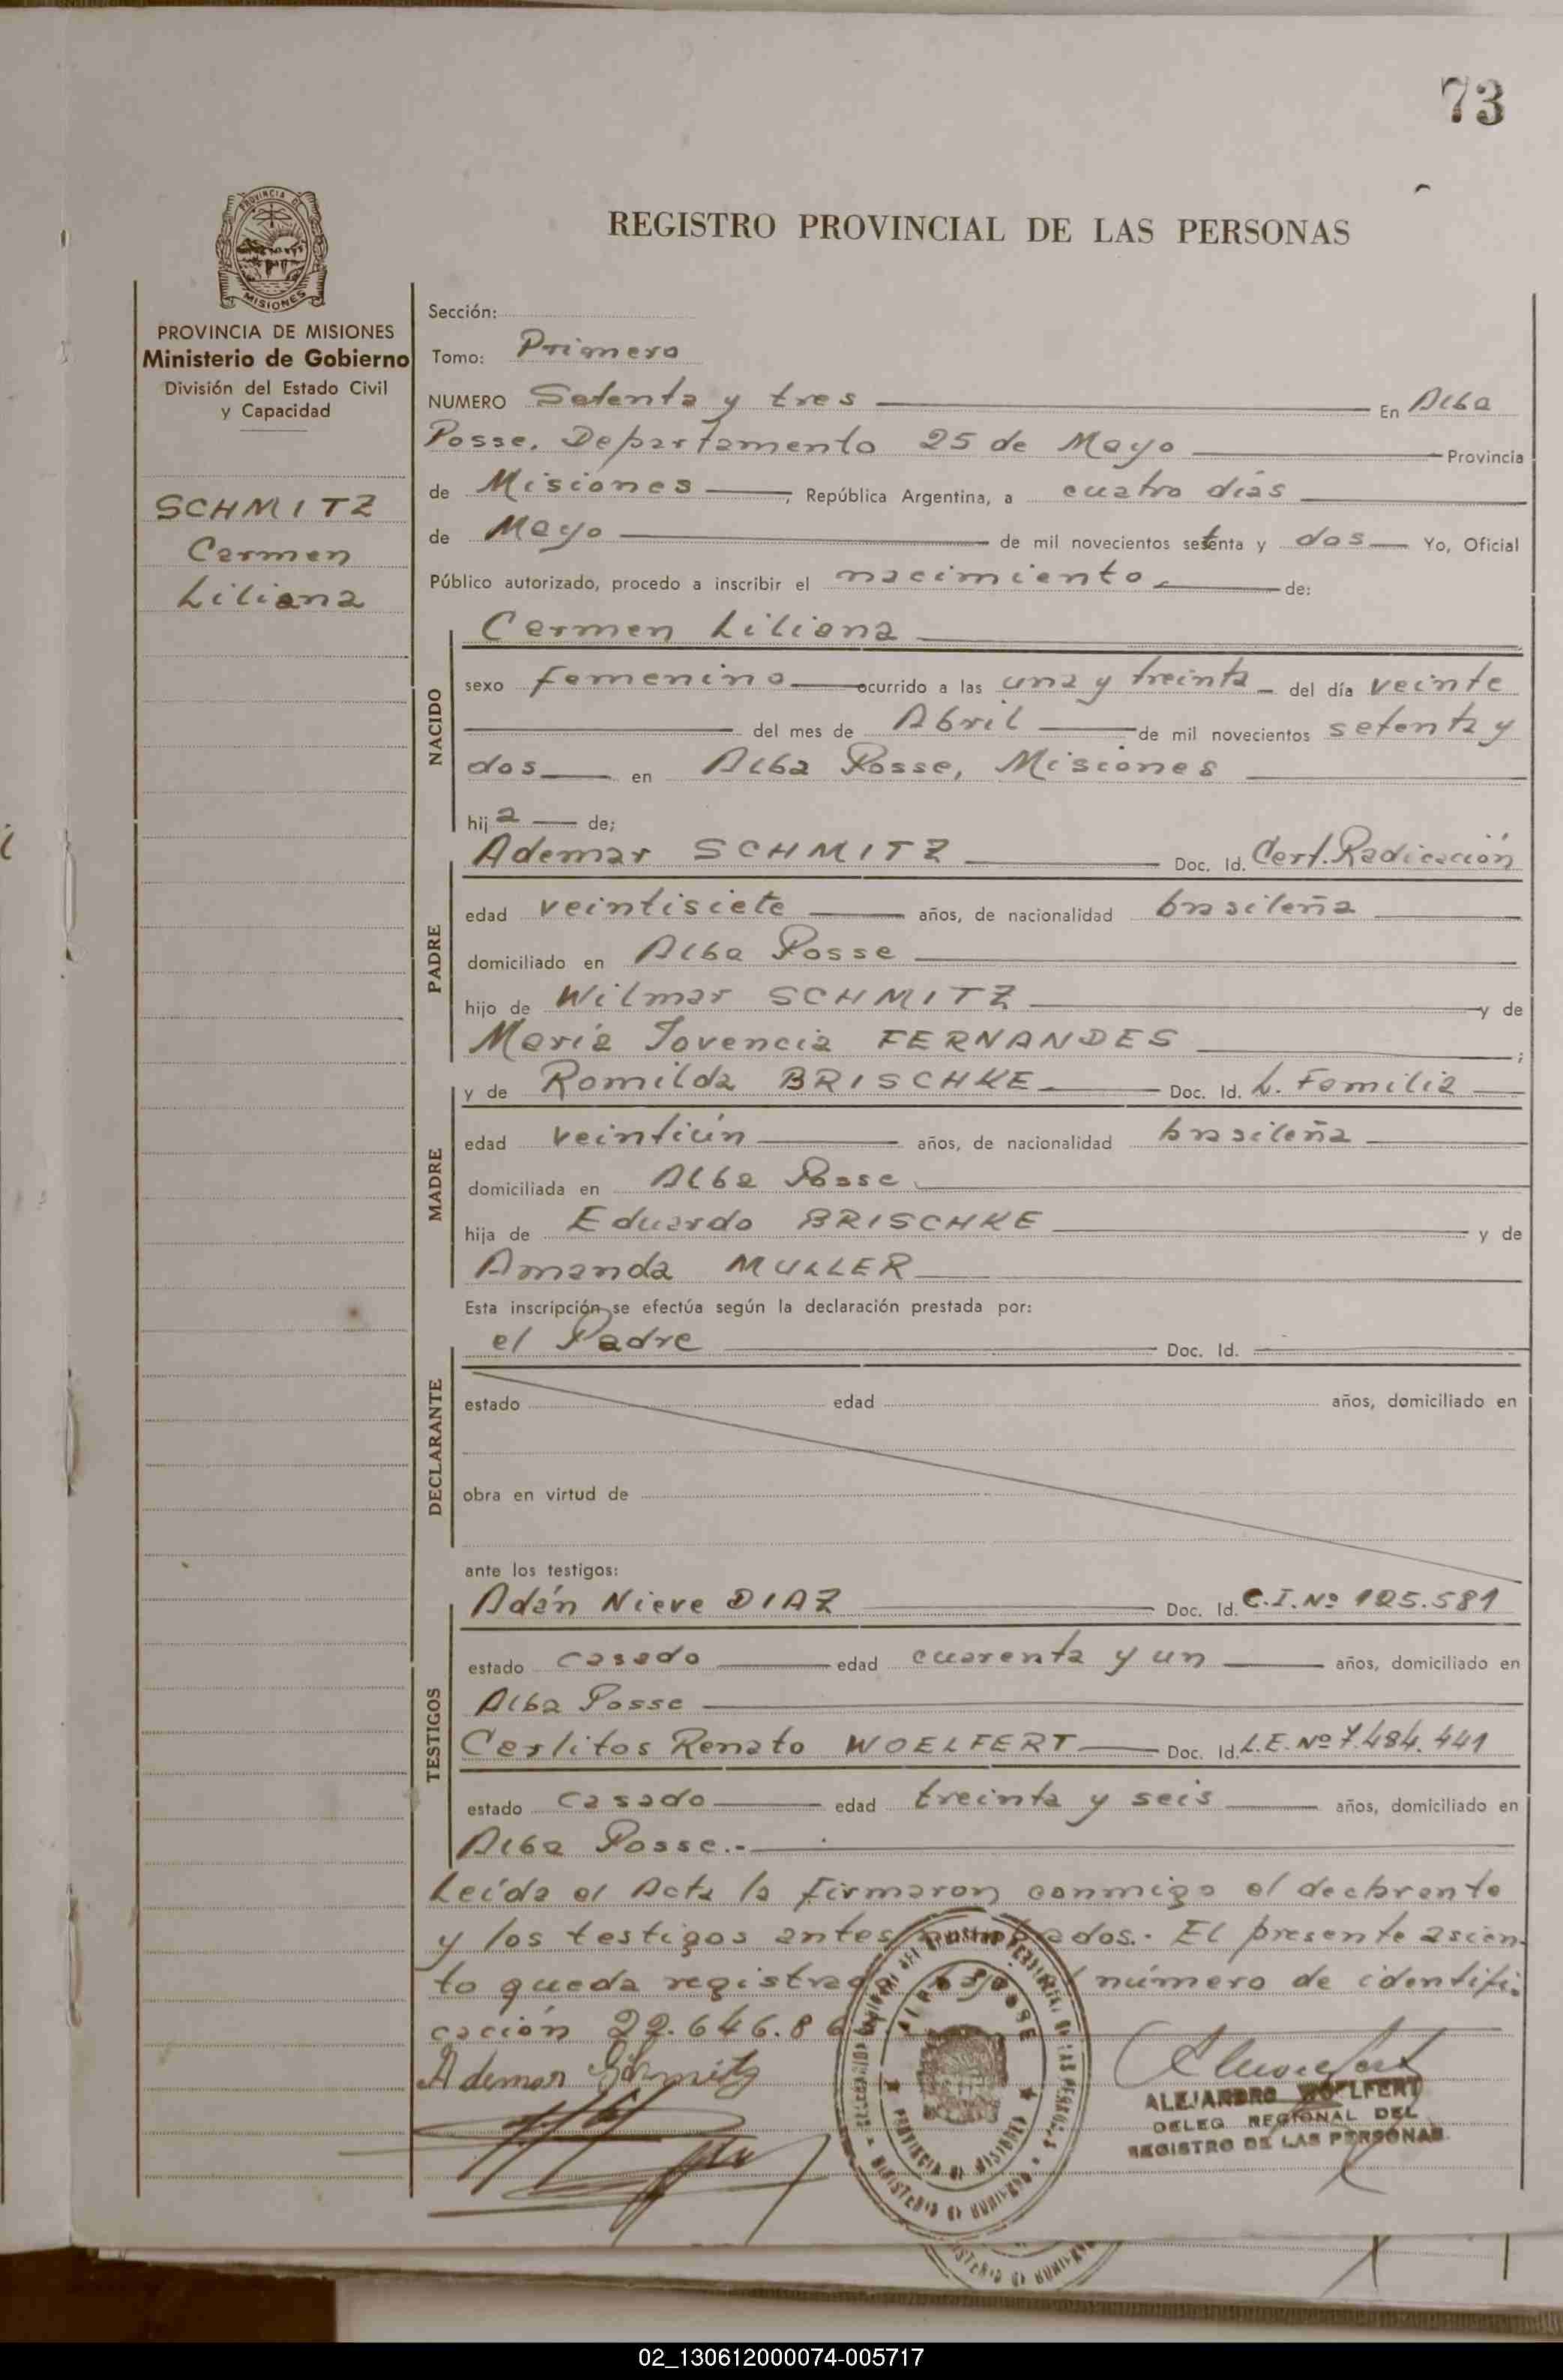 73
REGISTRO PROVINCIAL DE LAS PERSONAS
PROVINCIA DE MISIONES
PROVINCIA DE MISIONES
Ministerio de Gobierno
División del Estado Civil
y Capacidad
SCHMITZ
Carmen
Liliana
Sección:
Tomo: Primero
NUMERO Setenta y tres En Alba
Posse, Departamento 25 de Mayo Provincia
de Misiones, República Argentina, a cuatro días
de Mayo de mil novecientos setenta y dos Yo, Oficial
Público autorizado, procedo a inscribir el nacimiento de:
NACIDO
Carmen Liliana
sexo femenino ocurrido a las una y treinta del día veinte
del mes de Abril de mil novecientos setenta y
dos en Alba Posse, Misiones
hija de;
PADRE
Ademar SCHMITZ Doc. Id. Cert. Radicación
edad veintisiete años, de nacionalidad brasileña
domiciliado en Alba Posse
hijo de Wilmar SCHMITZ y de
María Jovencia FERNANDES ;
MADRE
y de Romilda BRISCHKE Doc. Id. L. Familia
edad veintiún años, de nacionalidad brasileña
domiciliada en Alba Posse
hija de Eduardo BRISCHKE y de
Amanda MULLER
Esta inscripción se efectúa según la declaración prestada por:
DECLARANTE
el Padre Doc. Id.
estado edad años, domiciliado en
obra en virtud de
ante los testigos:
TESTIGOS
Adán Nieve DIAZ Doc. Id. C.I. Nº 125.581
estado casado edad cuarenta y un años, domiciliado en
Alba Posse
Carlitos Renato WOELFERT Doc. Id. L.E. Nº 7.484.441
estado casado edad treinta y seis años, domiciliado en
Alba Posse.-
Leída el Acta la firmaron conmigo el declarante
y los testigos antes nombrados.- El presente asien-
to queda registrado bajo el número de identifi-
cación 22.646.86
Ademar Schmitz
ALBA POSSE
PROVINCIA DE MISIONES
MINISTERIO DE GOBIERNO
ALEJANDRO WOELFERT
DELEG. REGIONAL DEL
REGISTRO DE LAS PERSONAS
02_130612000074-005717